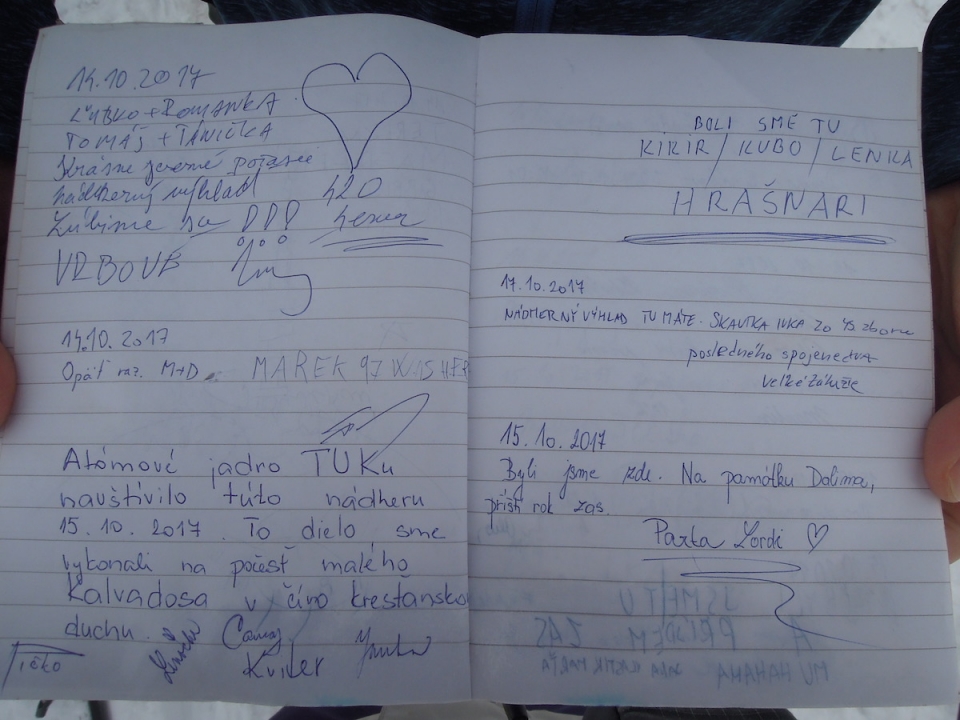 14.10.2017
ĽUBKO + ROMANKA
TOMÁŠ + TÁNIČKA
Krásne jesenné počasie
nádherný výhľad 420
Ľúbime sa
VRBOVÉ
14.10.2017
Opäť raz. M+D MAREK 97
Atómové jadro TUKu
navštívilo túto nádheru
15.10.2017. To dielo sme
vykonali na počesť malého
Kalvadosa v číro kresťansko
duchu.
Tičko
Kviler
BOLI SME TU
KIKIR / KUBO / LENKA
HRAŠNARI
17.10.2017
NÁDHERNÝ VÝHĽAD TU MÁTE. SKAUTKA IVKA zo 45 zboru
posledného spojenectva
veľké zálužie
15.10.2017
Byli jsme zde. Na památku Dalima,
příští rok zas.
Parta Lordi